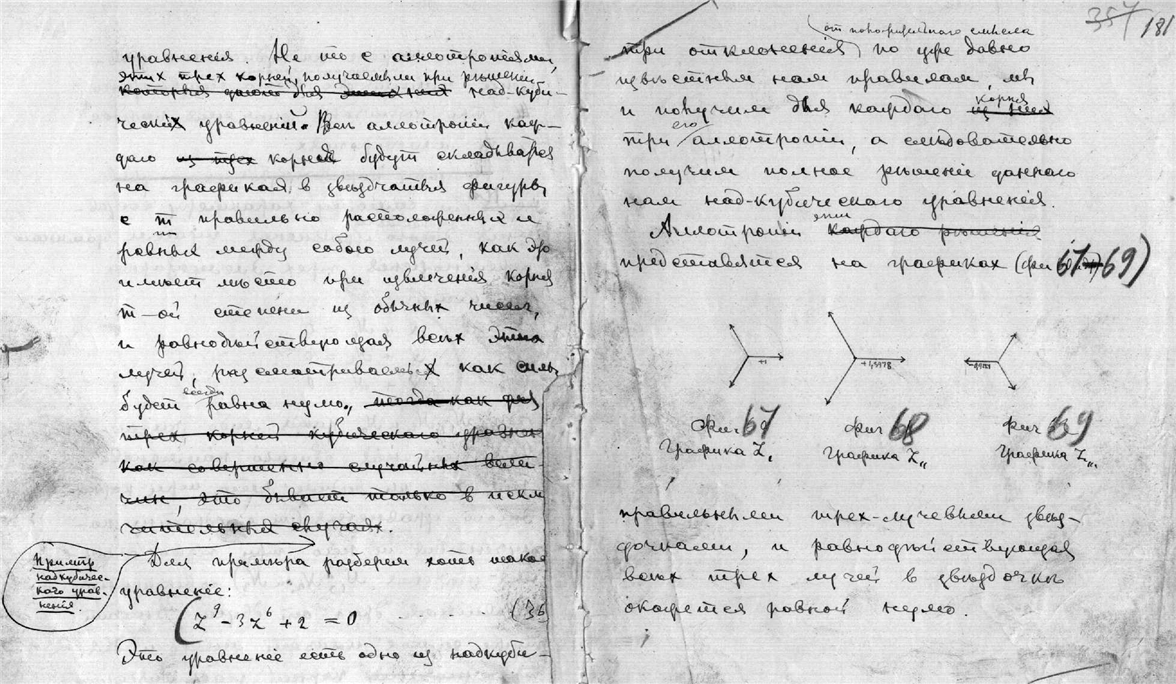 уравненія. Не то с аллотропіями
этих трех корней, получаемыми при рѣшеніи
которыя дают для над-куби-
ческих уравненій. Всѣ аллотропіи каж-
даго из трех корней будут складываться
на графиках в звѣздчатыя фигуры
с m правильно расположенных и
равных между собою лучей, как это
имѣет мѣсто при извлеченія корня
m—ой степени из обычных чисел,
и равнодѣйствующая всѣх этих
лучей, разсматриваемых как силы
будет всегда равна нулю, тогда как для
трех корней кубическаго уравнен
как совершенно случайных вели-
чин, это бывает только в искл
чительных случаях.
Примѣр
надкубиче-
скаго урав-
ненія.
Для примѣра разберем хоть такое
уравненіе:
Z⁹ - 3Z⁶ + 2 = 0 (36
Это уравненіе есть одно из надкуби-
357 181
от
три отклоненія по уже давно
извѣстным нам правилам, мы
и получим для каждаго из них корня
три его аллотропіи, а слѣдовательно
получим полное рѣшеніе даннаго
нам над-кубическаго уравненія.
Аллотропіи эти каждаго рѣшенія
представятся на графиках (фи 67-69)
+1
Фиг 67
Графика Z,
Фиг 68
Графика Z,,
Фиг 69
Графика Z,,,
правильными трех-лучевыми звѣз-
дочками, и равнодѣйствующая
всѣх трех лучей в звѣздочкѣ
окажется равной нулю.